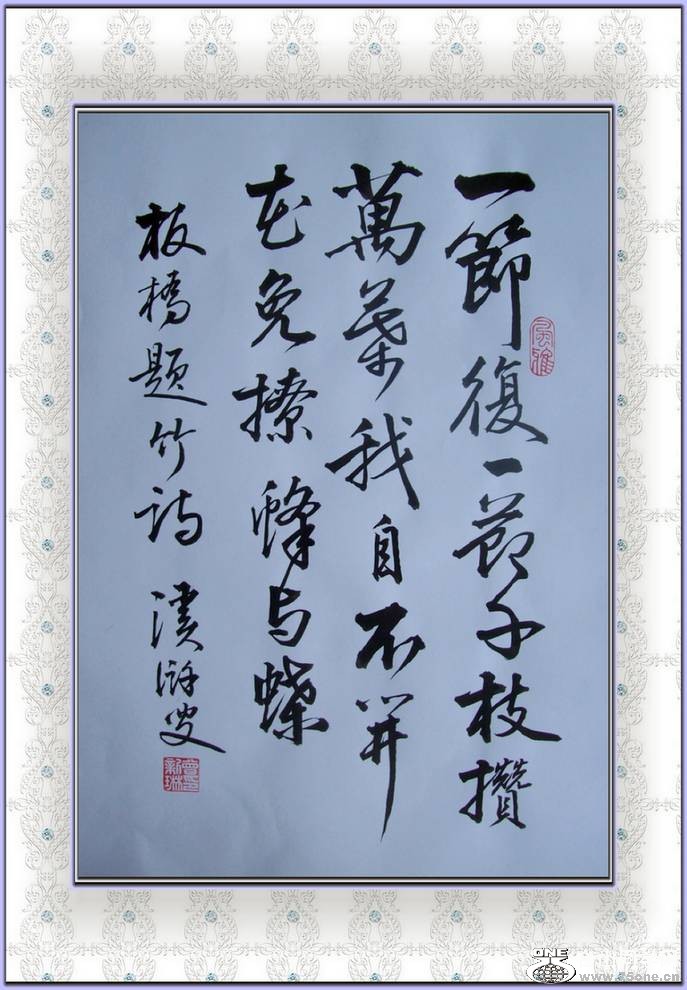 一節復一節千枝攢
萬葉我自不開
花免撩蜂与蝶
板橋題竹詩
叟
風雅
ONE
www.35one.cn